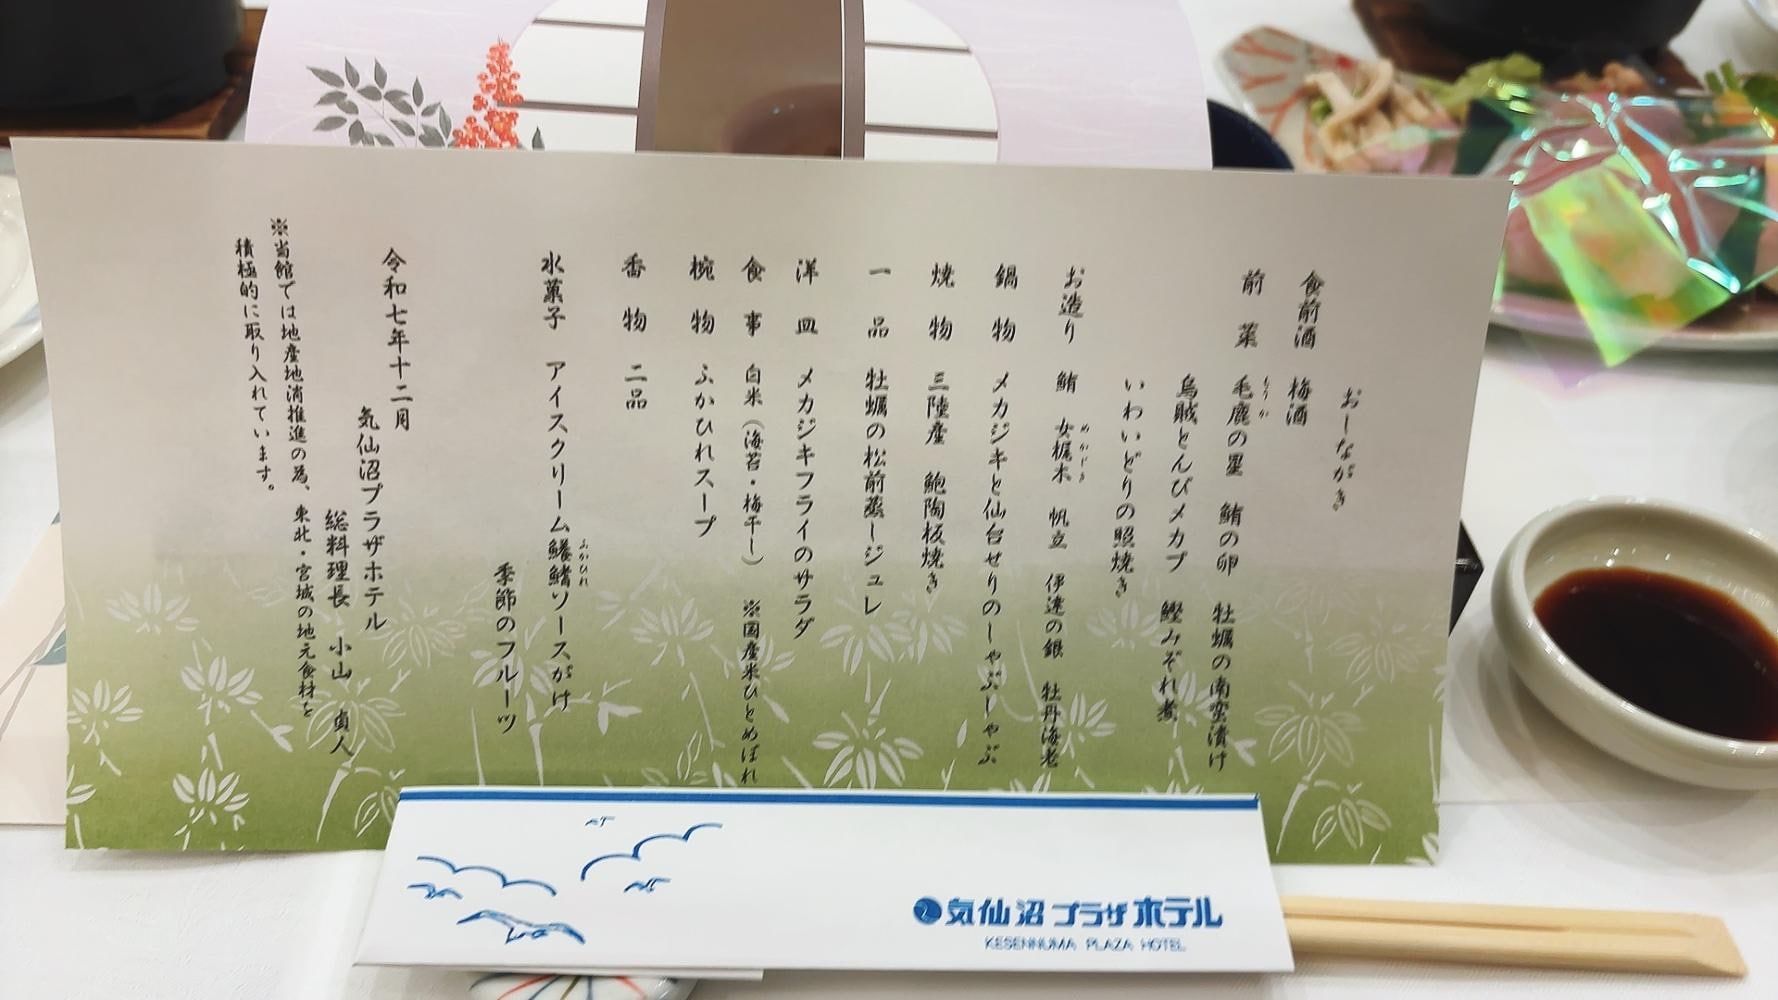 おしながき
食前酒　梅酒
前　菜　毛鹿の星　鮪の卵　牡蠣の南蛮漬け
もうか
烏賊とんびメカブ　鰹みぞれ煮
いわいどりの照焼き
お造り　鮪　女梶木　帆立　伊達の銀　牡丹海老
めかじき
鍋　物　メカジキと仙台せりのしゃぶしゃぶ
焼　物　三陸産　鮑陶板焼き
一　品　牡蠣の松前蒸しジュレ
洋　皿　メカジキフライのサラダ
食　事　白米（海苔・梅干し）　※国産米ひとめぼれ
椀　物　ふかひれスープ
香　物　二品
水菓子　アイスクリーム鱶鰭ソースがけ
ふかひれ
季節のフルーツ
令和七年十二月
気仙沼プラザホテル
総料理長　小山　貞人
※当館では地産地消推進の為、東北・宮城の地元食材を
積極的に取り入れています。
気仙沼プラザホテル
KESENNUMA PLAZA HOTEL